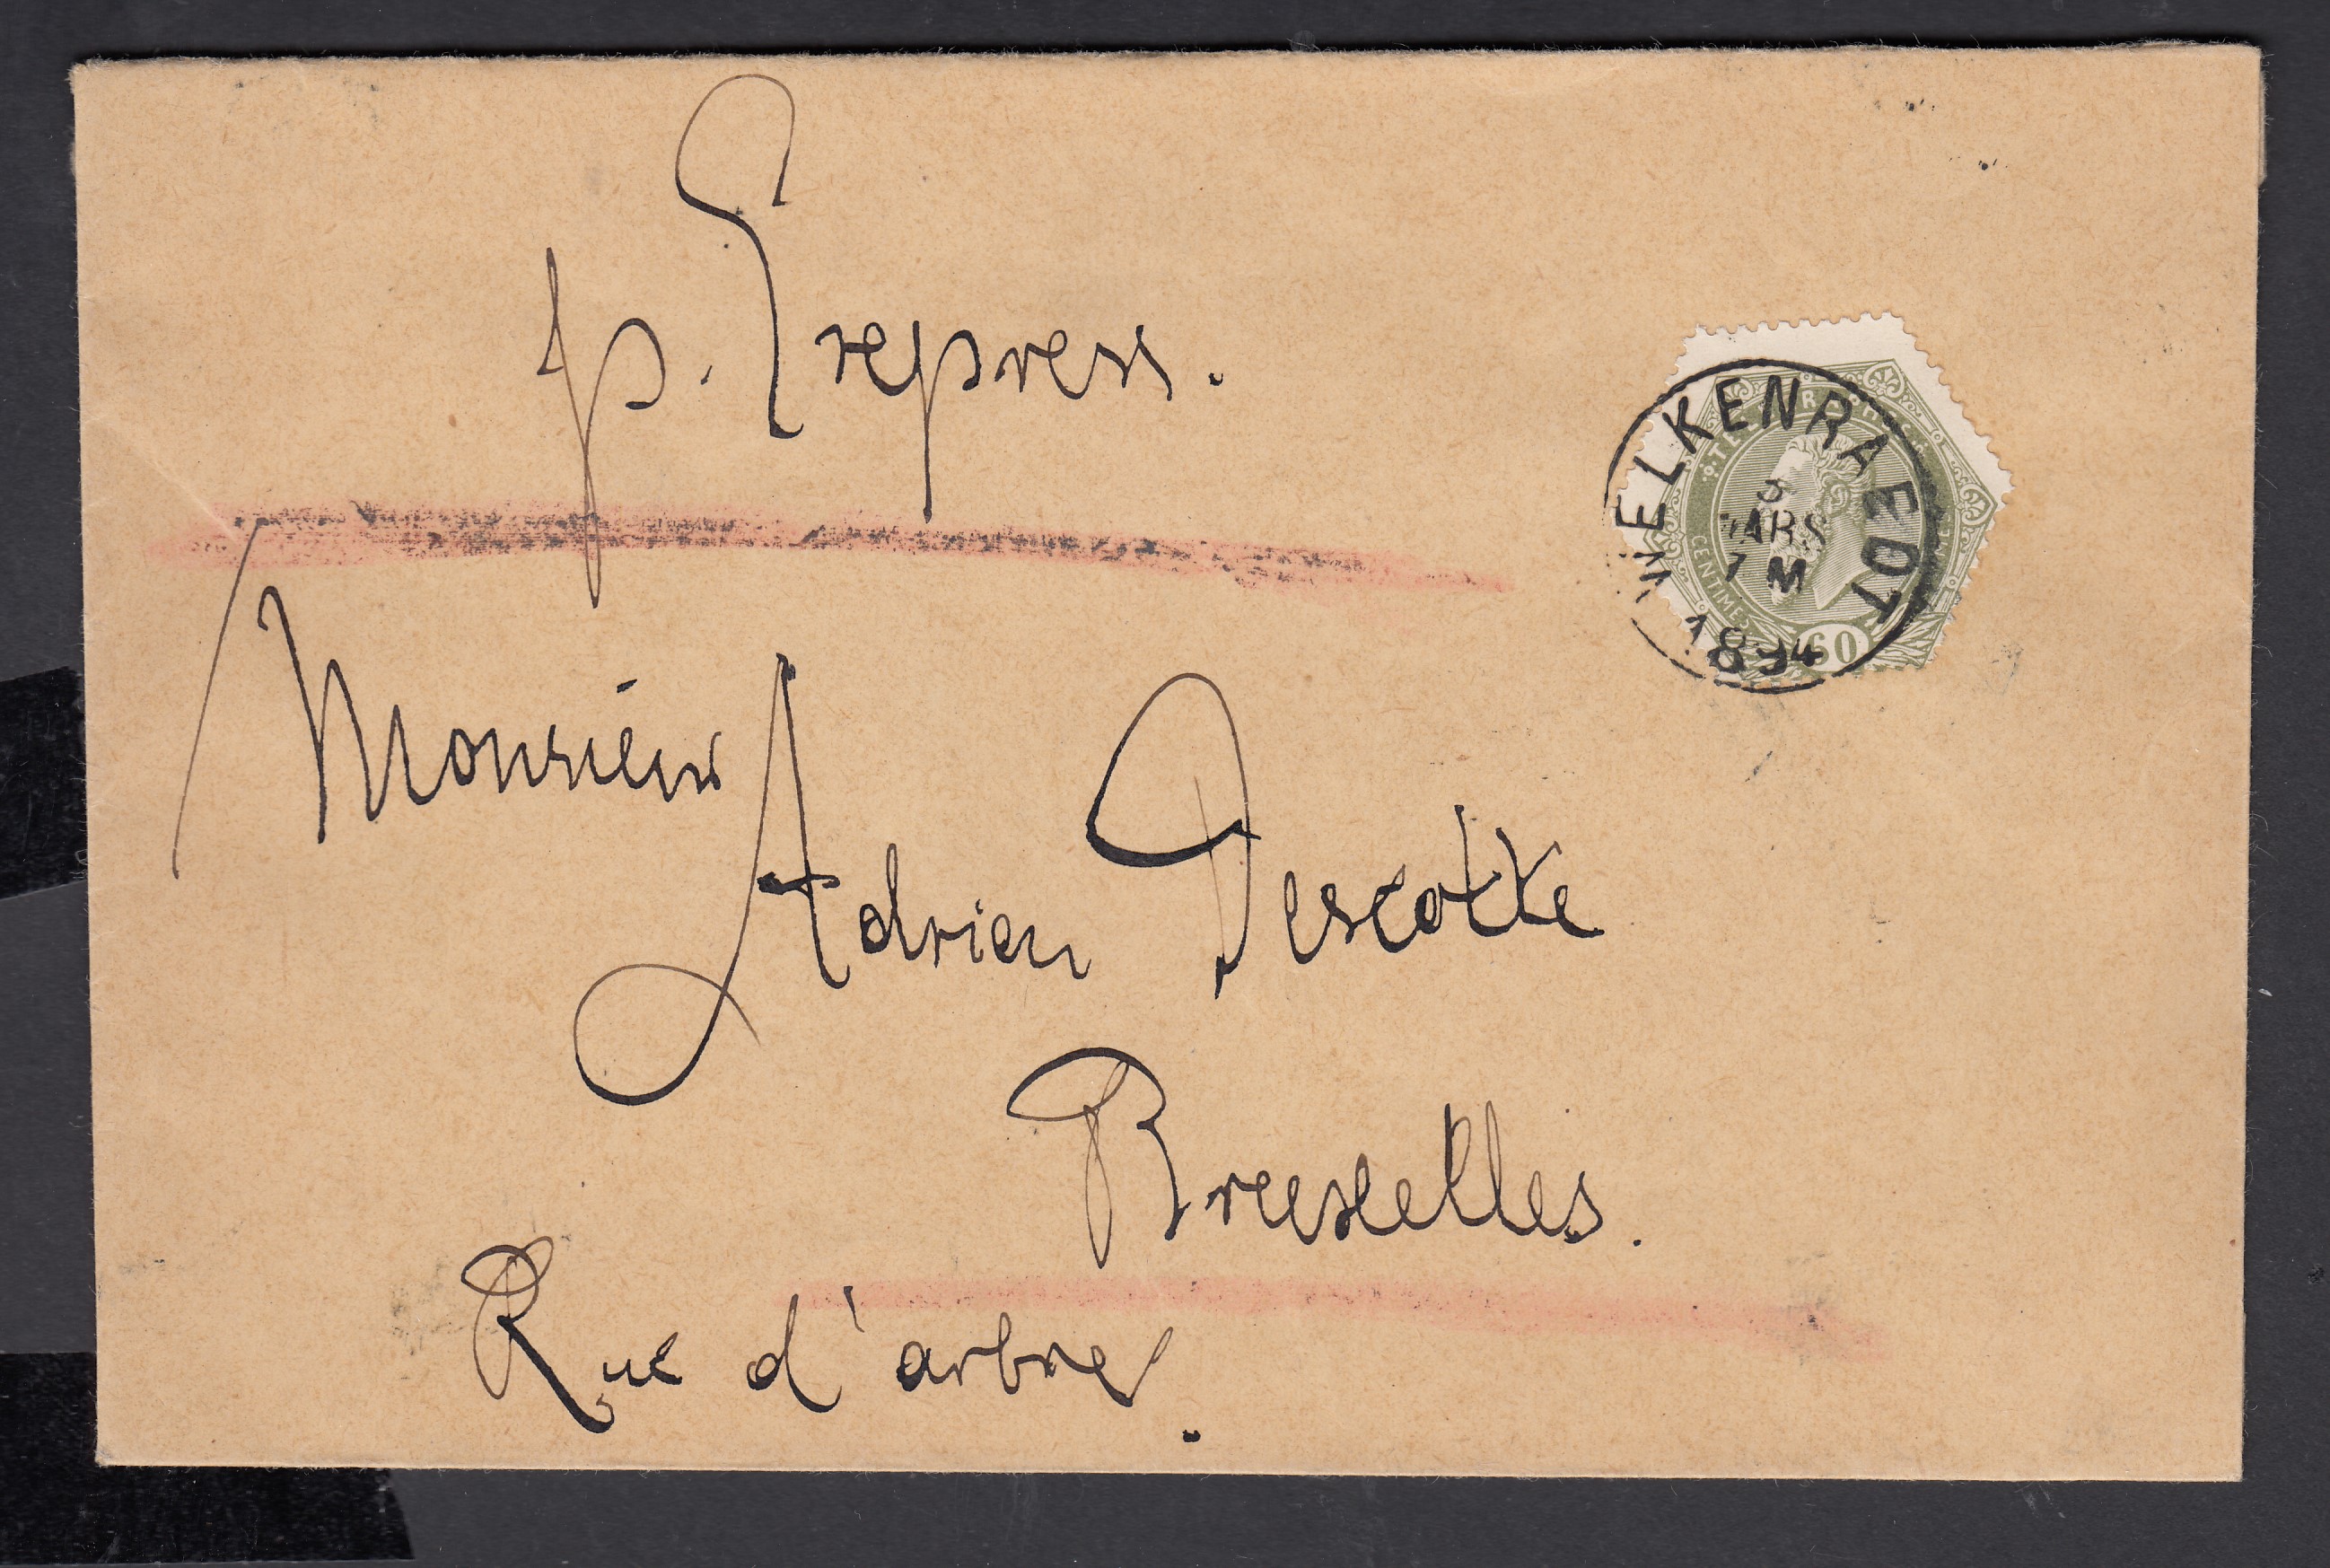 p. Express.
WELKENRAEDT
5
MARS
7 M
1894
TÉLÉGRAPHES
CENTIMES
60
Monsieur
Adrien Descotte
Bruxelles.
Rue d'arbre.